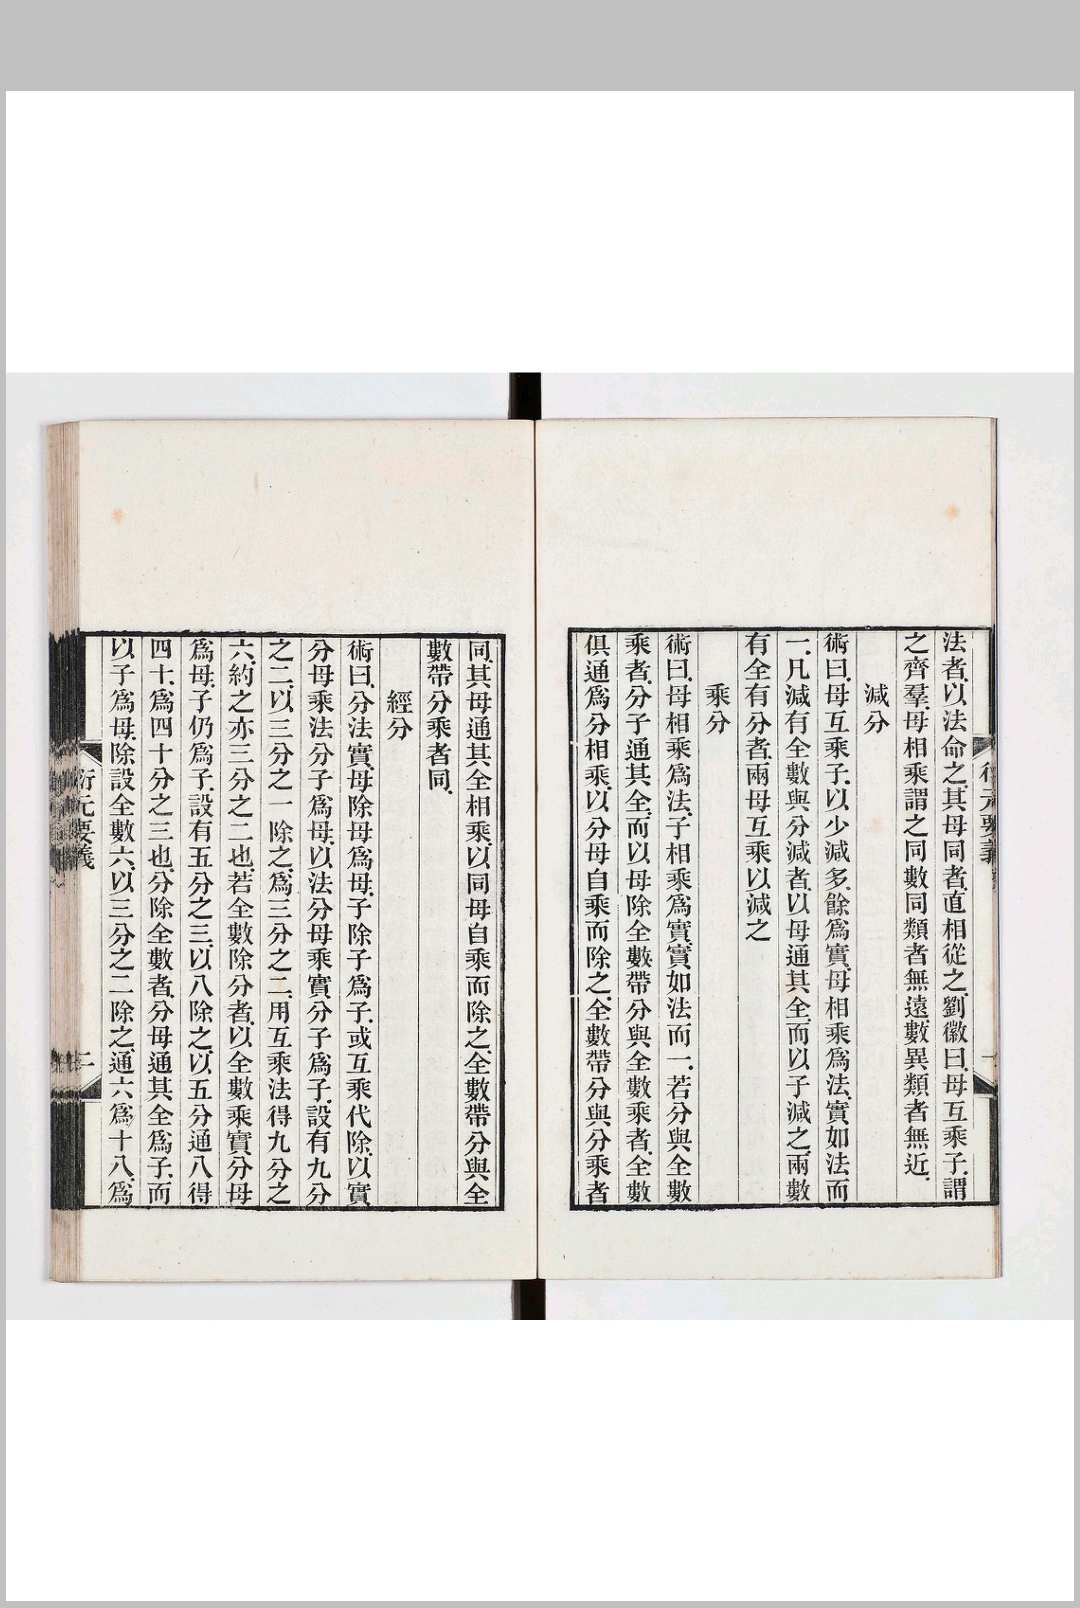 法者以法命之其母同者直相從之劉徽曰母互乘子謂
之齊羣母相乘謂之同數同類者無遠數異類者無近
減分
術曰母互乘子以少減多餘爲實母相乘爲法實如法而
一凡減有全數與分減者以母通其全而以子減之兩數
有全有分者兩母互乘以減之
乘分
術曰母相乘爲法子相乘爲實實如法而一若分與全數
乘者分子通其全而以母除全數帶分與全數乘者全數
俱通爲分相乘以分母自乘而除之全數帶分與分乘者
同其母通其全相乘以同母自乘而除之全數帶分與全
數帶分乘者同
經分
術曰分法實母除母爲母子除子爲子或互乘代除以實
分母乘法分子爲母以法分母乘實分子爲子設有九分
之二以三分之一除之爲三分之二用互乘法得九分之
六約之亦三分之二也若全數除分者以全數乘實分母
爲母子仍爲子設有五分之三以八除之以五分通八得
四十爲四十分之三也分除全數者分母通其全爲子而
以子爲母除設全數六以三分之二除之通六爲十八爲
衍元要義
二